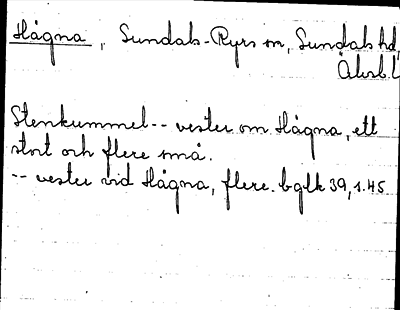 Hågna, Sundals-Ryrs sn, Sundals hd,
Älvsb. l
Stenkummel -- vester om Hågna, ett
stort och flere små.
-- vester vid Hågna, flere. bglk 39, s. 45